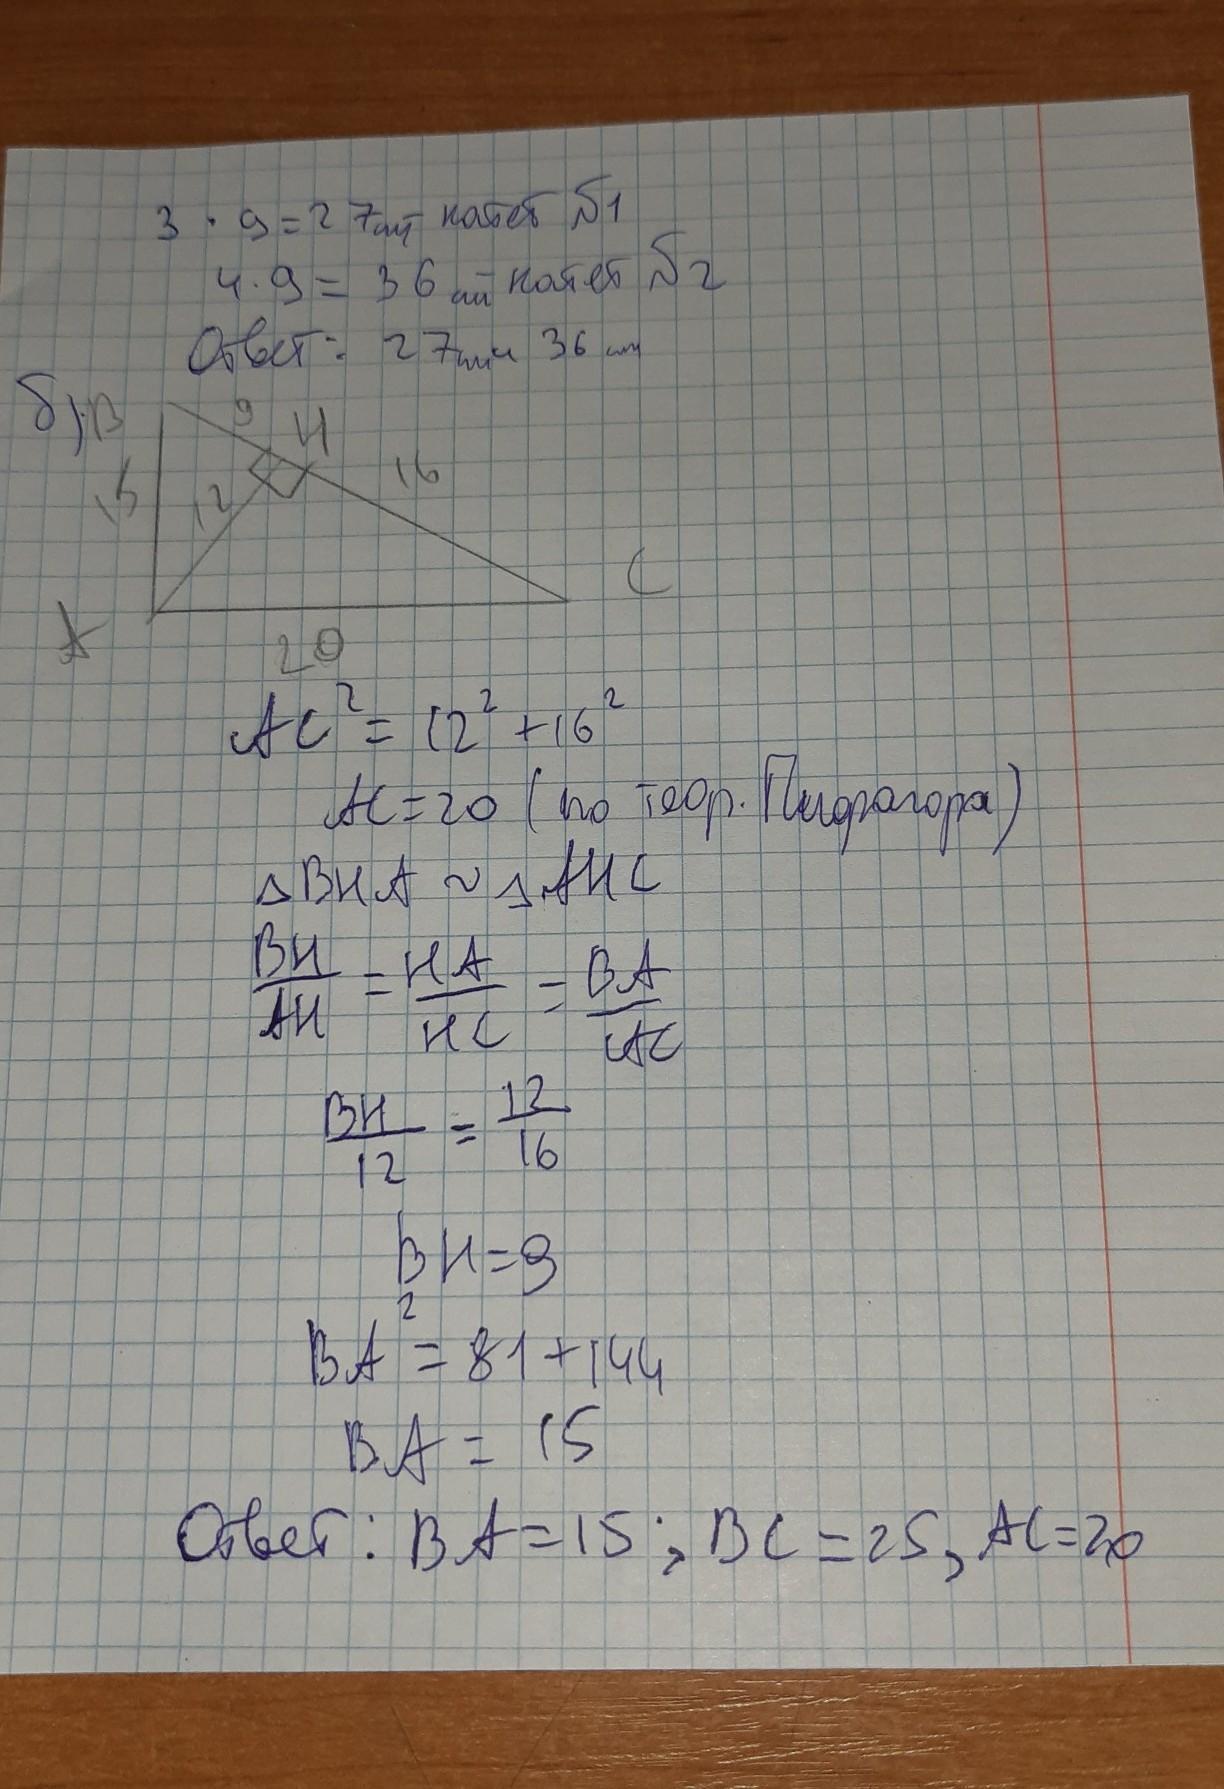 3 · 9 = 27 см катет №1
4 · 9 = 36 см катет №2
Ответ: 27 см и 36 см
б) B 9 H
15 12 16
A C
20
AC² = 12² + 16²
AC = 20 (по теор. Пифагора)
△BHA ~ △AHC
BH/AH = HA/HC = BA/AC
BH/12 = 12/16
BH = 9
BA² = 81 + 144
BA = 15
Ответ: BA = 15; BC = 25, AC = 20